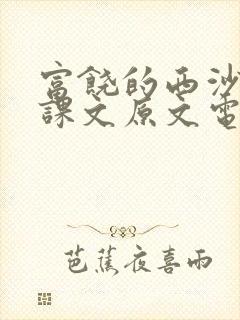 富饶的西沙
课文原文电
芭蕉夜喜雨